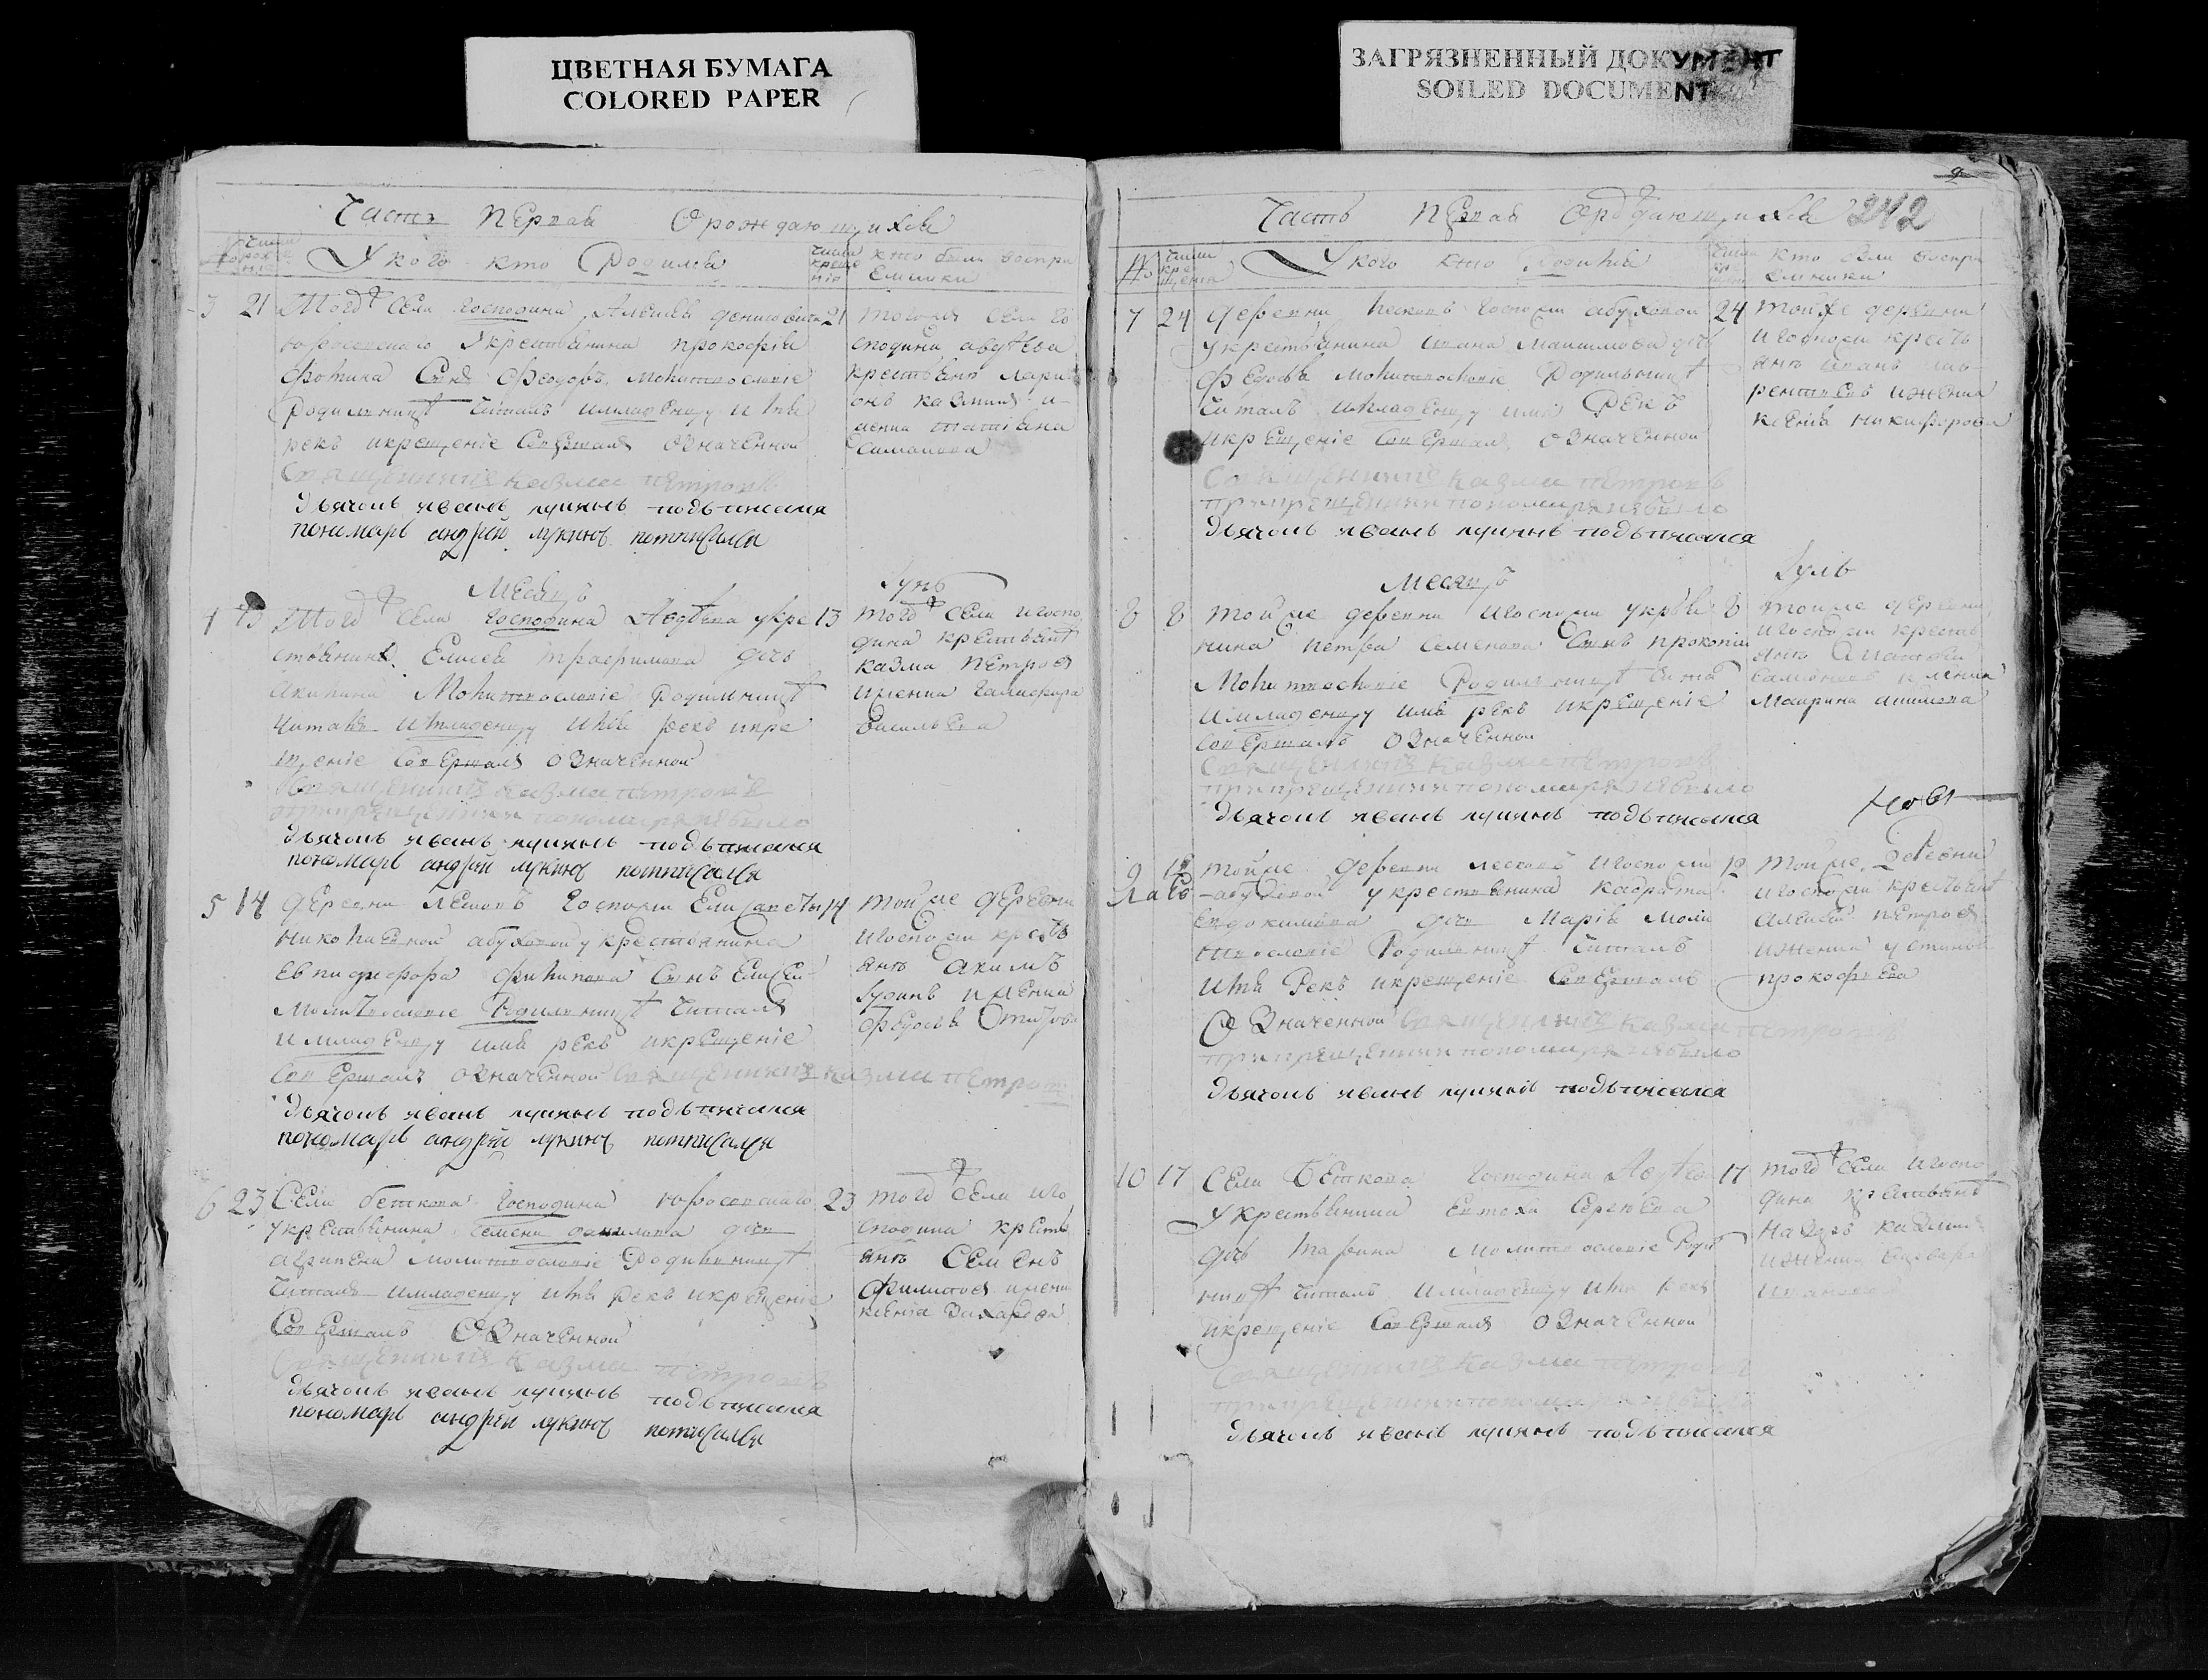 ЦВЕТНАЯ БУМАГА
COLORED PAPER
ЗАГРЯЗНЕННЫЙ ДОКУМЕНТ
SOILED DOCUMENT
Часть первая О рождающихся
У кого кто родился
числа крещенія
кто были воспри
емники
3 21 Того села господина Алексея денисовича 21
юрасовскаго у крестьянина прокофія
Фотина сынъ Феодоръ молитвословіе
родильницѣ читалъ и младенцу имя
рекъ и крещеніе совершалъ означенной
Священникъ казма петровъ
дьячокъ иванъ лукинъ подьписался
пономарь андрей лукинъ потписался
тогожъ села го
сподина авдѣева
крестьянъ лари
онъ казминъ
жена татьяна
симонова
Месяцъ Іунь
4 13 Того села господина Авдѣева у кре 13
стьянина Елисея трафимова дочь
Акилина Молитвословіе родильницѣ
читалъ и младенцу имя рекъ и кре
щеніе совершалъ означенной
Священникъ казма петровъ
при крещении пономаря небыло
дьячокъ иванъ лукинъ подьписался
пономарь андрей лукинъ потписался
того села и госпо
дина крестьянъ
казма петровъ
и женка
васильева
5 14 деревни лесковъ госпожи Елисаветы 14
николаевной абуховой у крестьянина
Евпидифора филипова сынъ Елисей
молитвословіе родильницѣ читалъ
и младенцу имя рекъ и крещеніе
совершалъ означенной священникъ казма петровъ
дьячокъ иванъ лукинъ подьписался
пономарь андрей лукинъ потписался
той же деревни
и госпожи кресть
янъ акимъ
Іудинъ и женка
федосья
6 23 Села беткова господина юрасовскаго 23
у крестьянина семена данилова дочь
агрипена молитвословіе родильницѣ
читалъ и младенцу имя рекъ и крещеніе
совершалъ означенной
Священникъ казма петровъ
дьячокъ иванъ лукинъ подьписался
пономарь андрей лукинъ потписался
того села и го
сподина кресть
янъ Семенъ
филиповъ и женка
ксенія захарова
Часть первая О рождающихся 242
У кого кто родился
кто были воспри
емники
7 24 деревни лесковъ госпожи абуховой 24
у крестьянина ивана Максимова дочь
федосья молитвословіе родильницѣ
читалъ и младенцу имя рекъ
и крещеніе совершалъ означенной
Священникъ казма петровъ
при крещении пономаря небыло
дьячокъ иванъ лукинъ подьписался
той же деревни
и госпожи кресть
янъ иванъ
и женка
ксенія никифорова
Месяцъ Іуль
8 8 той же деревни и госпожи у крестья 8
нина петра семенова сынъ прокопій
Молитвословіе родильницѣ чита
и младенцу имя рекъ и крещеніе
совершалъ означенной
Священникъ казма петровъ
при крещении пономаря небыло
дьячокъ иванъ лукинъ подьписался
той же деревни
и госпожи кресть
янъ
и женка
Маврина
9 12 той же деревни лесковъ и госпожи 12
абуховой у крестьянина
Евдокимова дочь Марія моли
твословіе родильницѣ читалъ
имя рекъ и крещеніе совершалъ
означенной Священникъ казма петровъ
при крещении пономаря небыло
дьячокъ иванъ лукинъ подьписался
той же деревни
и госпожи крестьянъ
алексей петровъ
и женка устинья
прокофьева
10 17 Села беткова господина Авдѣева 17
у крестьянина Евтеха Сергеева
дочь Марина Молитвословіе роди
ницѣ читалъ и младенцу имя рекъ
и крещеніе совершалъ означенной
Священникъ казма петровъ
при крещении пономаря небыло
дьячокъ иванъ лукинъ подьписался
того села и госпо
дина крестьянъ
Назаръ казминъ
и женка варвара
иванова